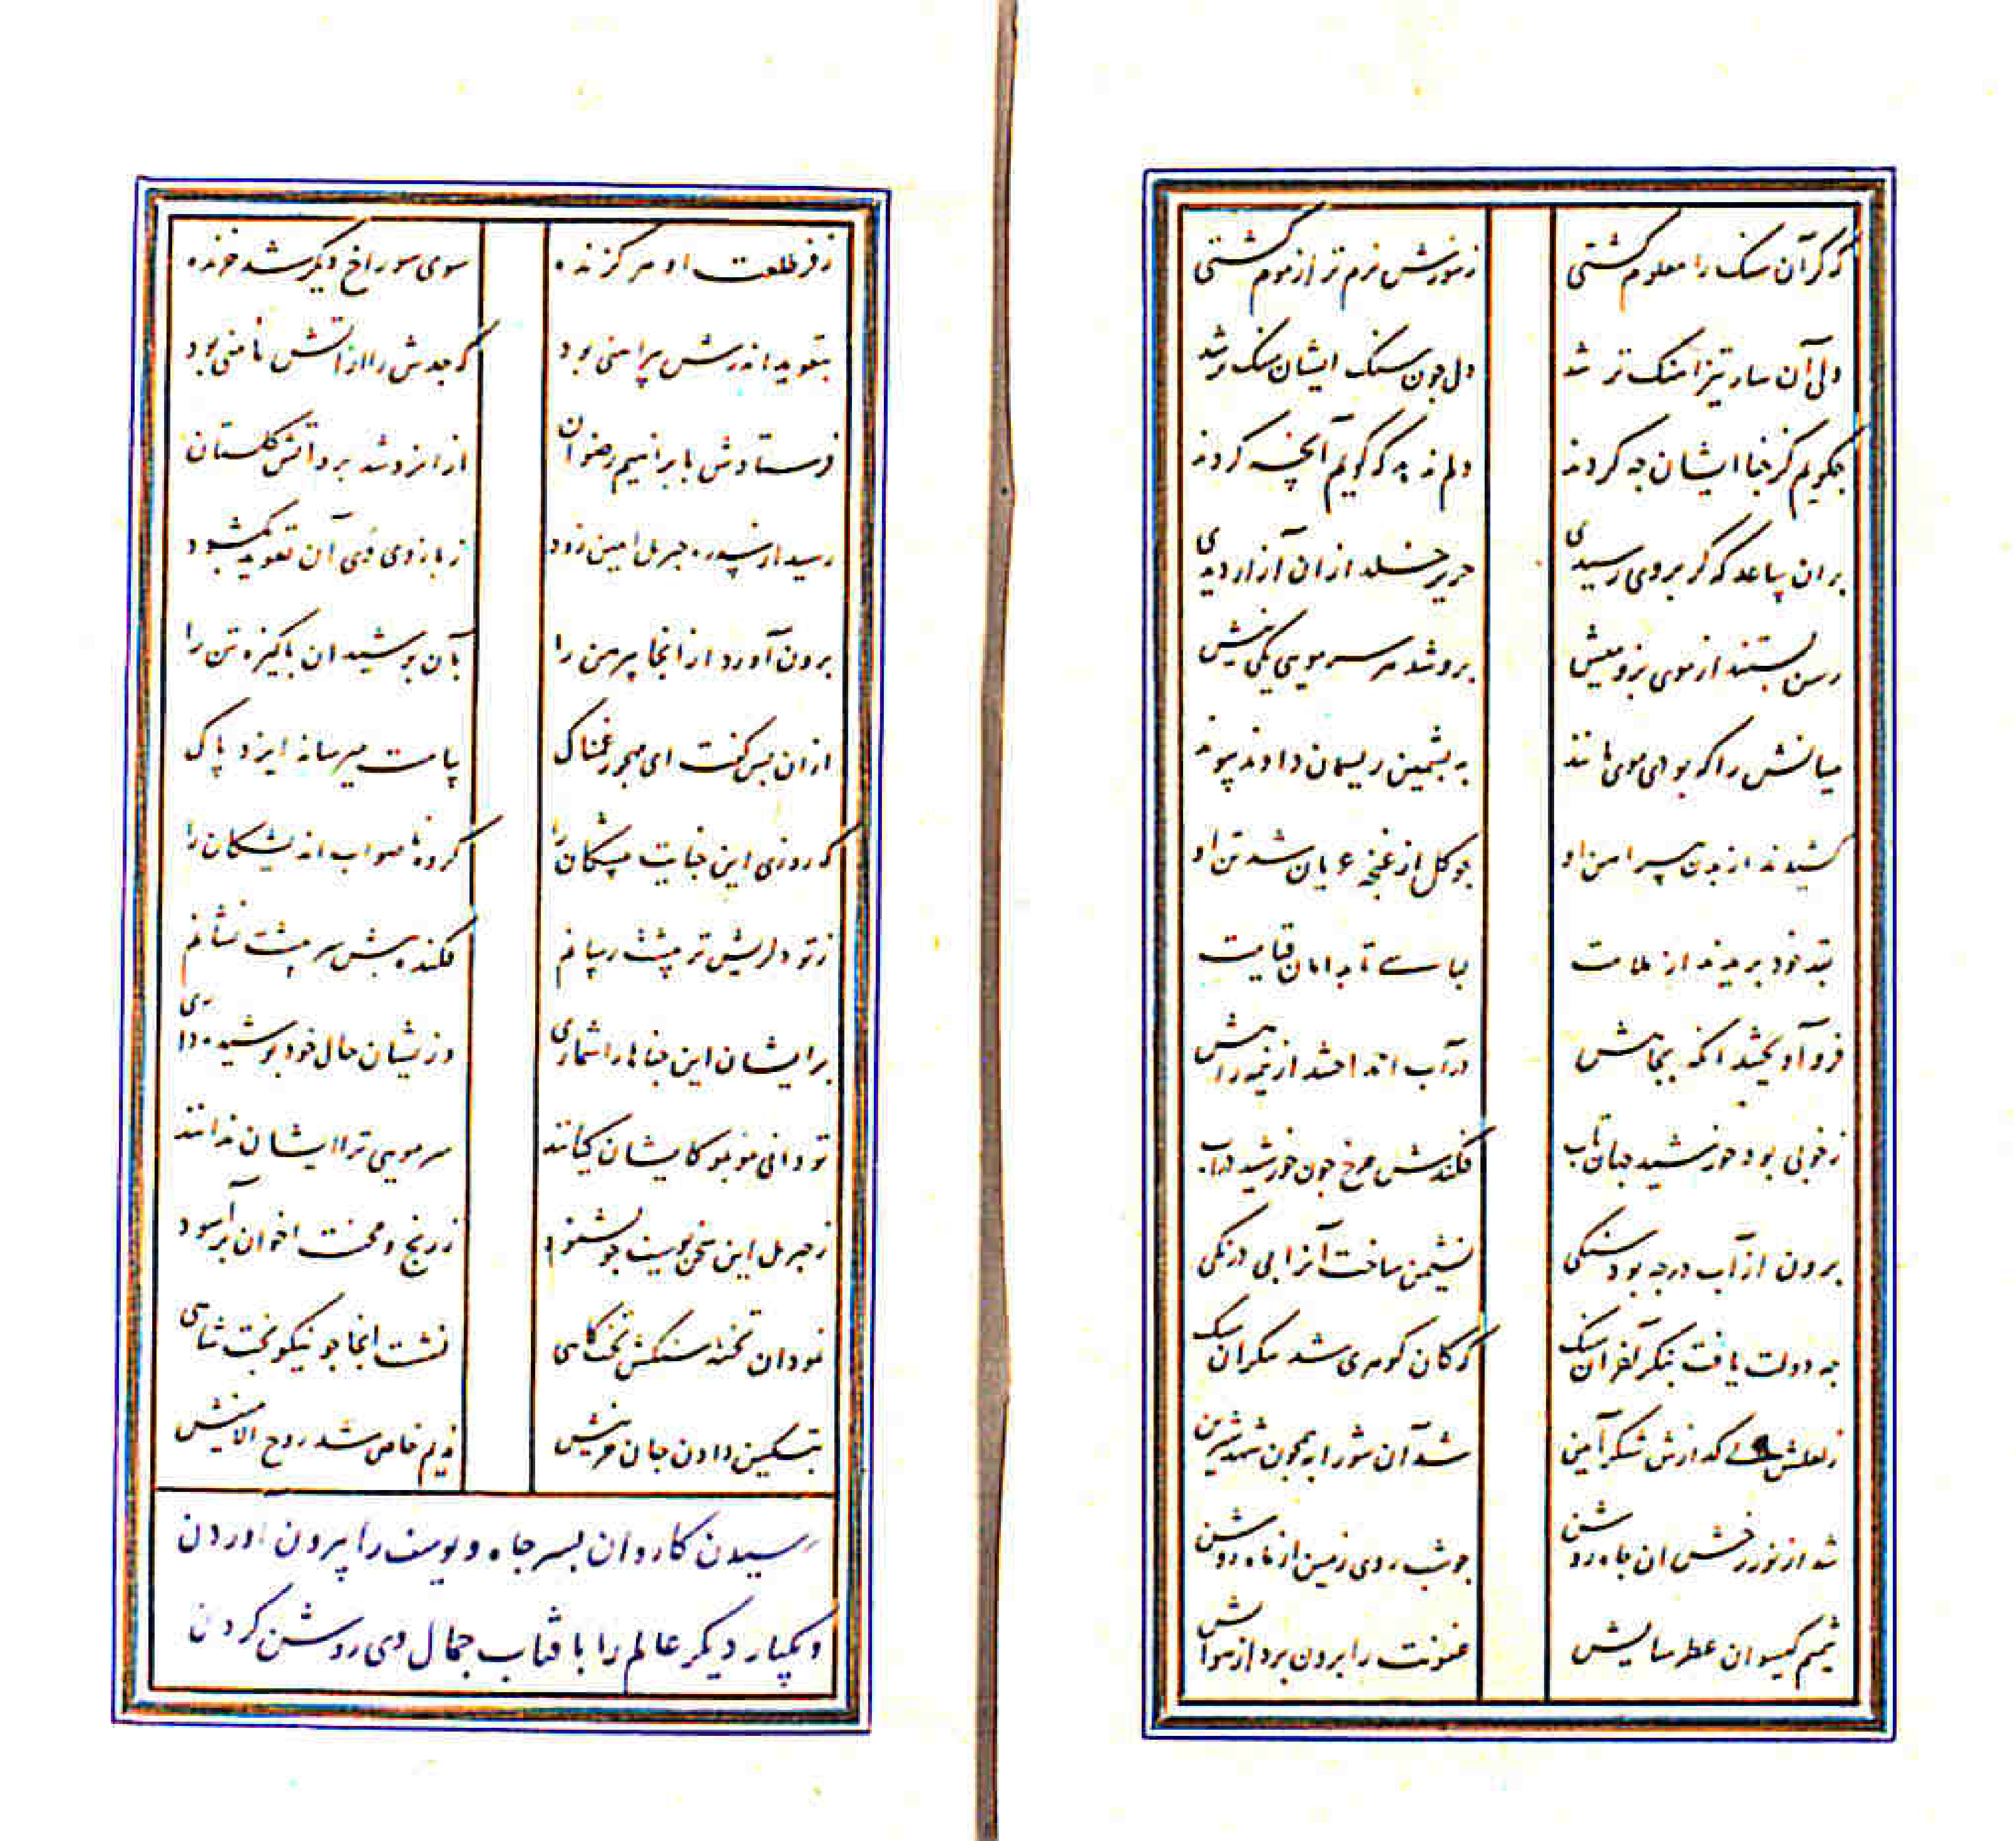 که گر آن سنک را معلوم کشتی
ز سوزش نرم تر از موم کشتی
ولی آن ساز تیز اهنک تر شد
دل چون سنک ایشان سنک تر شد
چکویم کز جفا ایشان چه کردند
دلم ندهد که کویم آنچه کردند
بران ساعد که کر بروی رسیدی
حریر خلد ازان آزار دیدی
رسن بستند از موی بز و میش
برو شد هر سر مویی یکی نیش
میانش را که بودی موی مانند
به بشمین ریسمان دادند پیوند
کشیدند از بدن پیراهن او
چو کل از غنچه عریان شد تن او
بقد خود بریدند از ملامت
لباسے تا بدامان قیامت
فرو آویختند انکه بچاهش
در آب انداختند از نیمه راهش
ز خوبی بود خورشید جهان تاب
فکندش چرخ چون خورشید در آب
برون از آب در چه بود سنکی
نشیمن ساخت آنرا بی درنکی
چه دولت یافت بنکر آخر آن سنک
که کان کوهری شد بیکران سنک
ز لعلش که ازش شکر آمین
شد آن شورابه همچون شهد شیرین
شد از نور رخش ان چاه روشن
چو شب روی زمین از ماه روشن
شمیم کیسوان عطر سایش
عفونت را برون برد از هوایش
ز فر طلعت او هر کزنده
سوی سوراخ دیکر شد خزنده
بتعوید اندرش پیراهنی بود
که جدش را از اتش مامنی بود
فرستادش بابراهیم رضوان
ازان رو شد برو اتش کلستان
رسید از سدره جبریل امین زود
ز بازوی وی آن تعوید بکشود
برون آورد ازانجا پیرهن را
بآن پوشید ان پاکیزه تن را
ازان پس کفت ای مهجور غمناک
پیامت میرساند ایزد پاک
که روزی این جنایت پیشکان را
کروه ناصواب اندیشکان را
ز تو دلریش تر پیشت رسانم
فکنده پیش سر پیشت نشانم
بر ایشان این جفاها را شماری
وز یشان حال خود پوشیده داری
تو دانی مو بمو کایشان کیانند
سر مویی ترا ایشان ندانند
ز جبریل این سخن یوسف چو بشنود
ز رنج و محنت اخوان برآسود
نمود ان تخته سنکش تختکاهی
نشست انجا چو نیکو بخت شاهی
بتسکین دادن جان حزینش
ندیم خاص شد روح الامینش
رسیدن کاروان بسر چاه و یوسف را بیرون آوردن
و یکبار دیکر عالم را بافتاب جمال وی روشن کردن